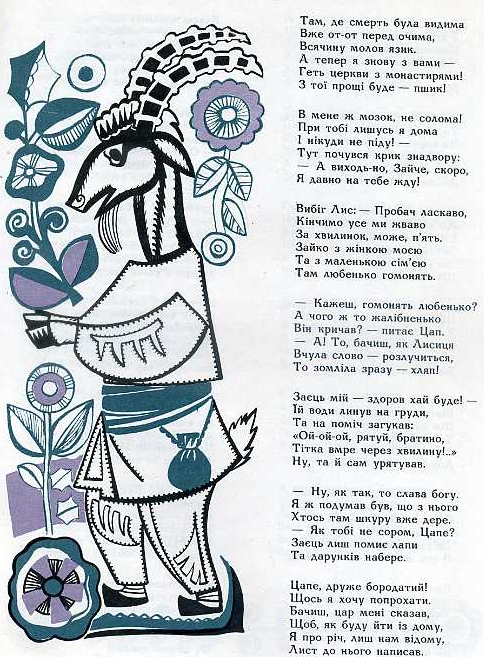 Там, де смерть була видима
Вже от-от перед очима,
Всячину молов язик.
А тепер я знову з вами —
Геть церкви з монастирями!
З тої прощі буде — пшик!
В мене ж мозок, не солома!
При тобі лишусь я дома
І нікуди не піду! —
Тут почувся крик знадвору:
— А виходь-но, Зайче, скоро,
Я давно на тебе жду!
Вибіг Лис: — Пробач ласкаво,
Кінчимо усе ми жваво
За хвилинок, може, п'ять.
Зайко з жінкою моєю
Та з маленькою сім'єю
Там любенько гомонять.
— Кажеш, гомонять любенько?
А чого ж то жалібненько
Він кричав? — питає Цап.
— А! То, бачиш, як Лисиця
Вчула слово — розлучиться,
То зомліла зразу — хляп!
Заєць мій — здоров хай буде! —
Їй води линув на груди,
Та на поміч загукав:
«Ой-ой-ой, рятуй, братино,
Тітка вмре через хвилину!..»
Ну, та й сам урятував.
— Ну, як так, то слава богу.
Я ж подумав був, що з нього
Хтось там шкуру вже дере.
— Як тобі не сором, Цапе?
Заєць лиш помиє лапи
Та дарунків набере.
Цапе, друже бородатий!
Щось я хочу попрохати.
Бачиш, цар мені сказав,
Щоб, як буду йти із дому,
Я про річ, лиш нам відому,
Лист до нього написав.